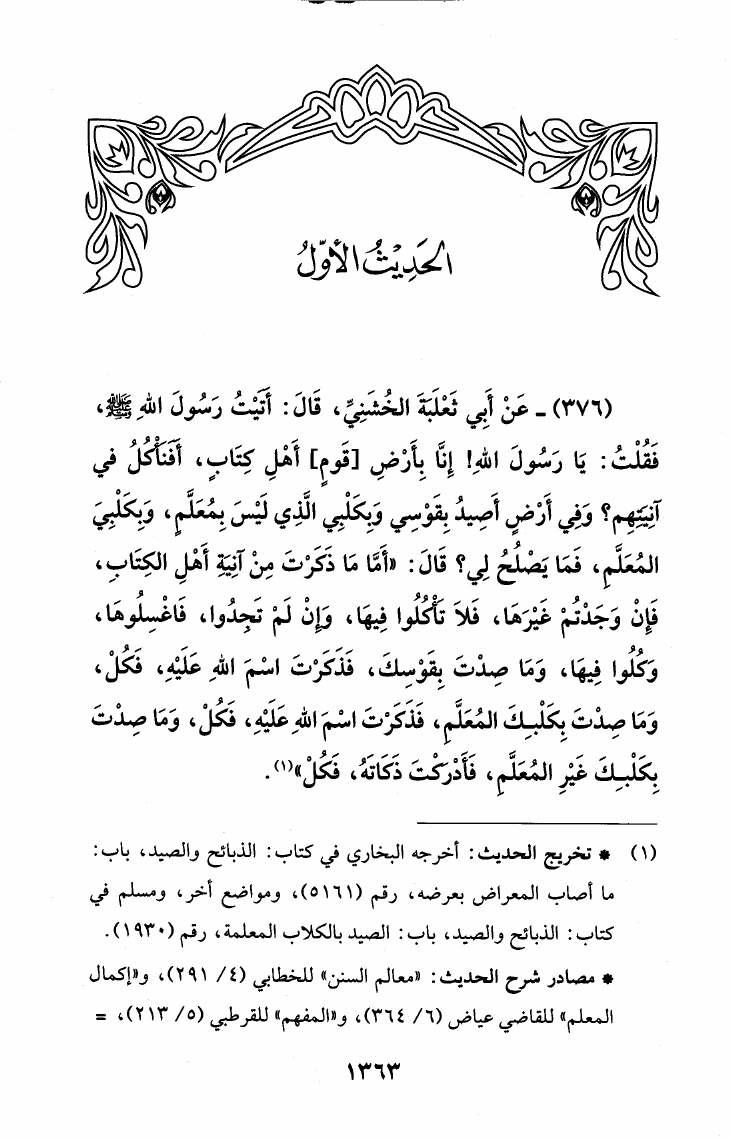 الحَدِيْثُ الأوّلُ
(٣٧٦) ـ عَنْ أَبِي ثَعْلَبَةَ الخُشَنِيِّ، قَالَ: أَتَيْتُ رَسُولَ اللهِ ﷺ،
فَقُلْتُ: يَا رَسُولَ اللهِ! إِنَّا بِأَرْضِ [قَومٍ] أَهْلِ كِتَابٍ، أَفَنَأْكُلُ في
آنِيَتِهِم؟ وَفِي أَرْضٍ أَصِيدُ بِقَوْسِي وَبِكَلْبِي الَّذِي لَيْسَ بِمُعَلَّمٍ، وَبِكَلْبِيَ
المُعَلَّمِ، فَمَا يَصْلُحُ لِي؟ قَالَ: «أَمَّا مَا ذَكَرْتَ مِنْ آنِيَةِ أَهْلِ الكِتَابِ،
فَإِنْ وَجَدْتُمْ غَيْرَهَا، فَلاَ تَأْكُلُوا فِيهَا، وَإِنْ لَمْ تَجِدُوا، فَاغْسِلُوهَا،
وَكُلُوا فِيهَا، وَمَا صِدْتَ بِقَوْسِكَ، فَذَكَرْتَ اسْمَ اللهِ عَلَيْهِ، فَكُلْ،
وَمَا صِدْتَ بِكَلْبِكَ المُعَلَّمِ، فَذَكَرْتَ اسْمَ اللهِ عَلَيْهِ، فَكُلْ، وَمَا صِدْتَ
بِكَلْبِكَ غَيْرِ المُعَلَّمِ، فَأَدْرَكْتَ ذَكَاتَهُ، فَكُلْ»(١).
(١) * تخريج الحديث: أخرجه البخاري في كتاب: الذبائح والصيد، باب:
ما أصاب المعراض بعرضه، رقم (٥١٦١)، ومواضع أخر، ومسلم في
كتاب: الذبائح والصيد، باب: الصيد بالكلاب المعلمة، رقم (١٩٣٠).
* مصادر شرح الحديث: «معالم السنن» للخطابي (٤/ ٢٩١)، و«إكمال
المعلم» للقاضي عياض (٦/ ٣٦٤)، و«المفهم» للقرطبي (٥/ ٢١٣)، =
١٣٦٣